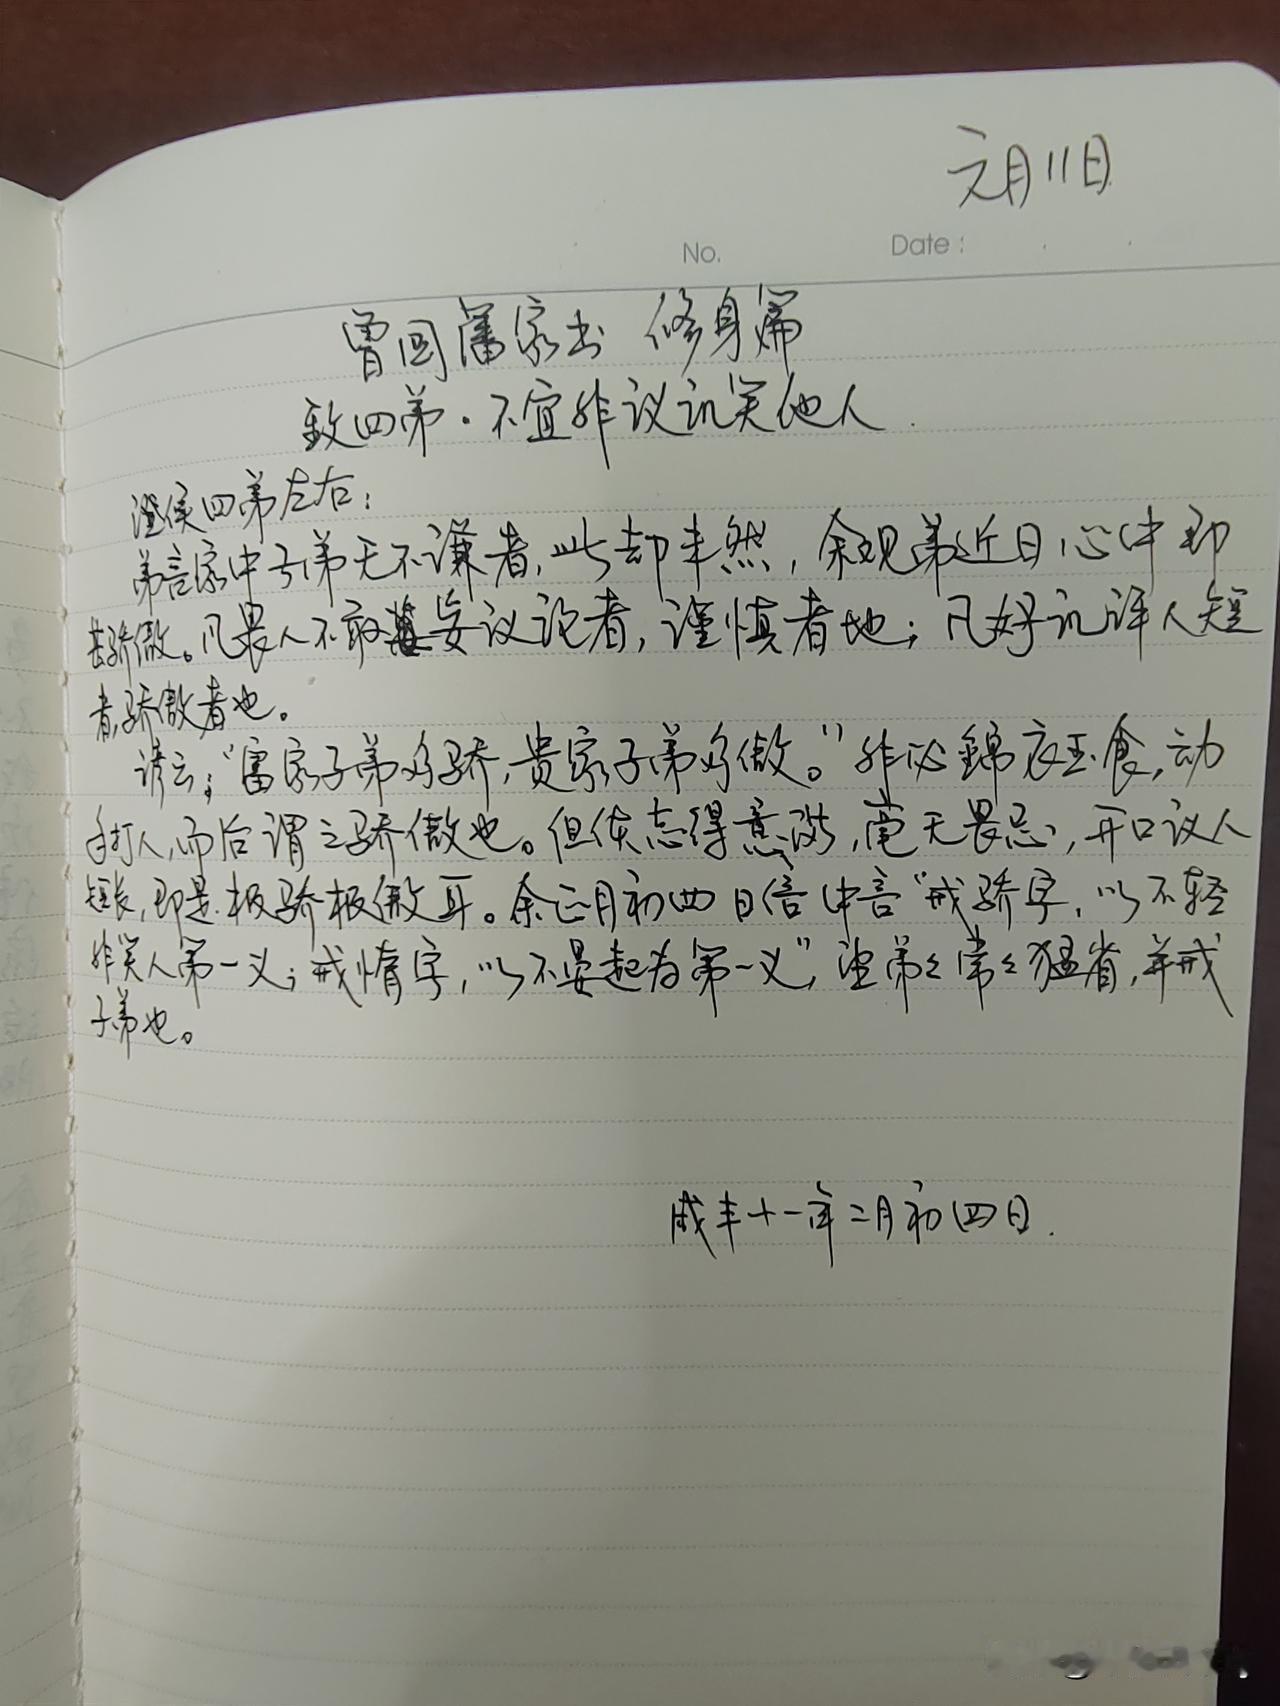 元月11日
No.
Date:
曾国藩家书 修身篇
致四弟·不宜非议讥笑他人.
澄侯四弟左右:
弟言家中子弟无不谦者,此却未然,余观弟近日心中即
甚骄傲。凡畏人不敢妄议论者,谨慎者也;凡好讥评人短
者,骄傲者也。
谚云:“富家子弟多骄,贵家子弟多傲。”非必錦衣玉食,动
手打人,而后谓之骄傲也。但使志得意满,毫无畏忌,开口议人
短长,即是极骄极傲耳。余正月初四日信中言“戒骄字,以不轻
非笑人第一义;戒惰字,以不晏起为第一义”,望弟々常々猛省,并戒
子弟也。
咸丰十一年二月初四日.